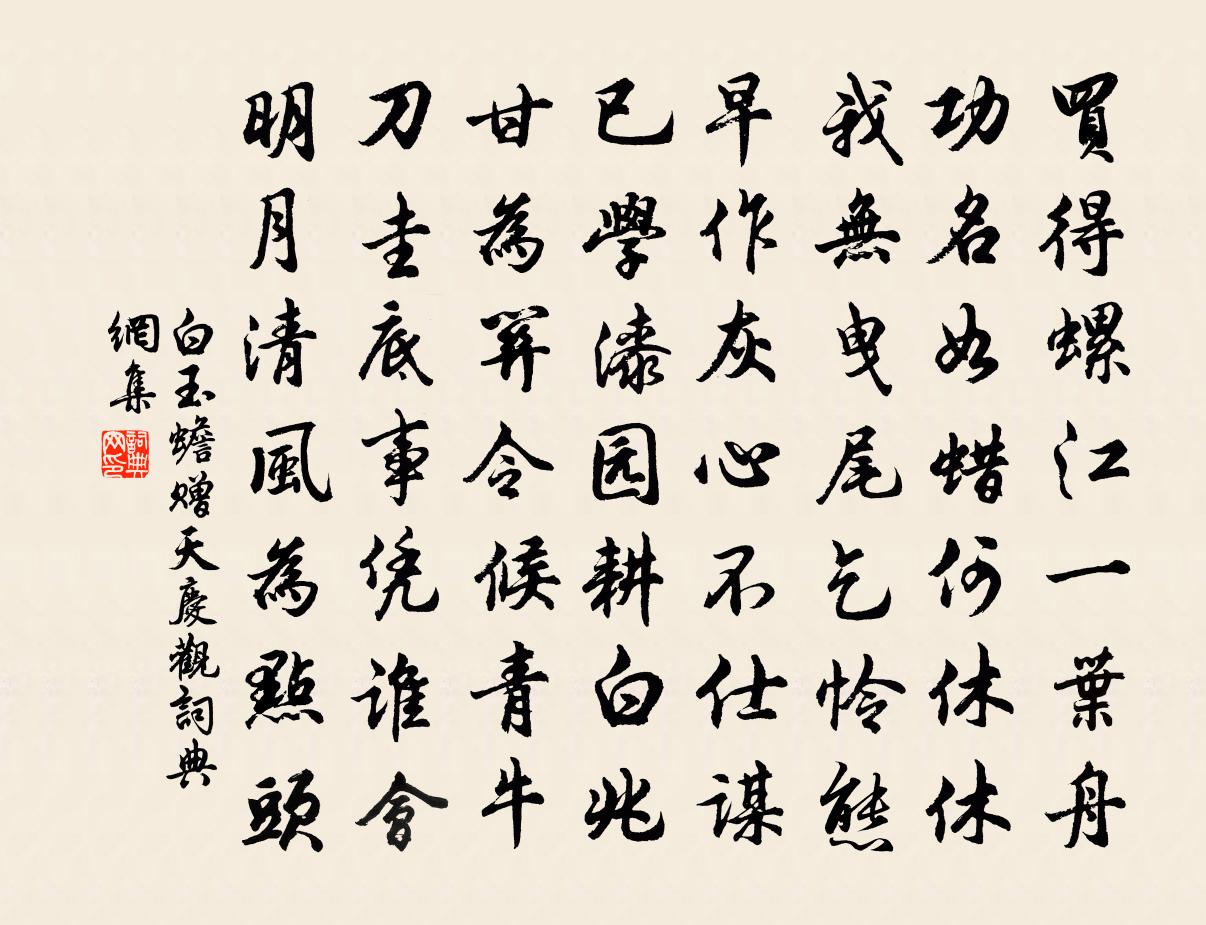 買得螺江一葉舟
功名如蜡何休休
我無曳尾乞怜態
早作灰心不仕謀
已學漆园耕白兆
甘為關令候青牛
刀圭底事凭誰會
明月清風為點頭
白玉蟾贈天慶觀詞典
網集
詞典网印